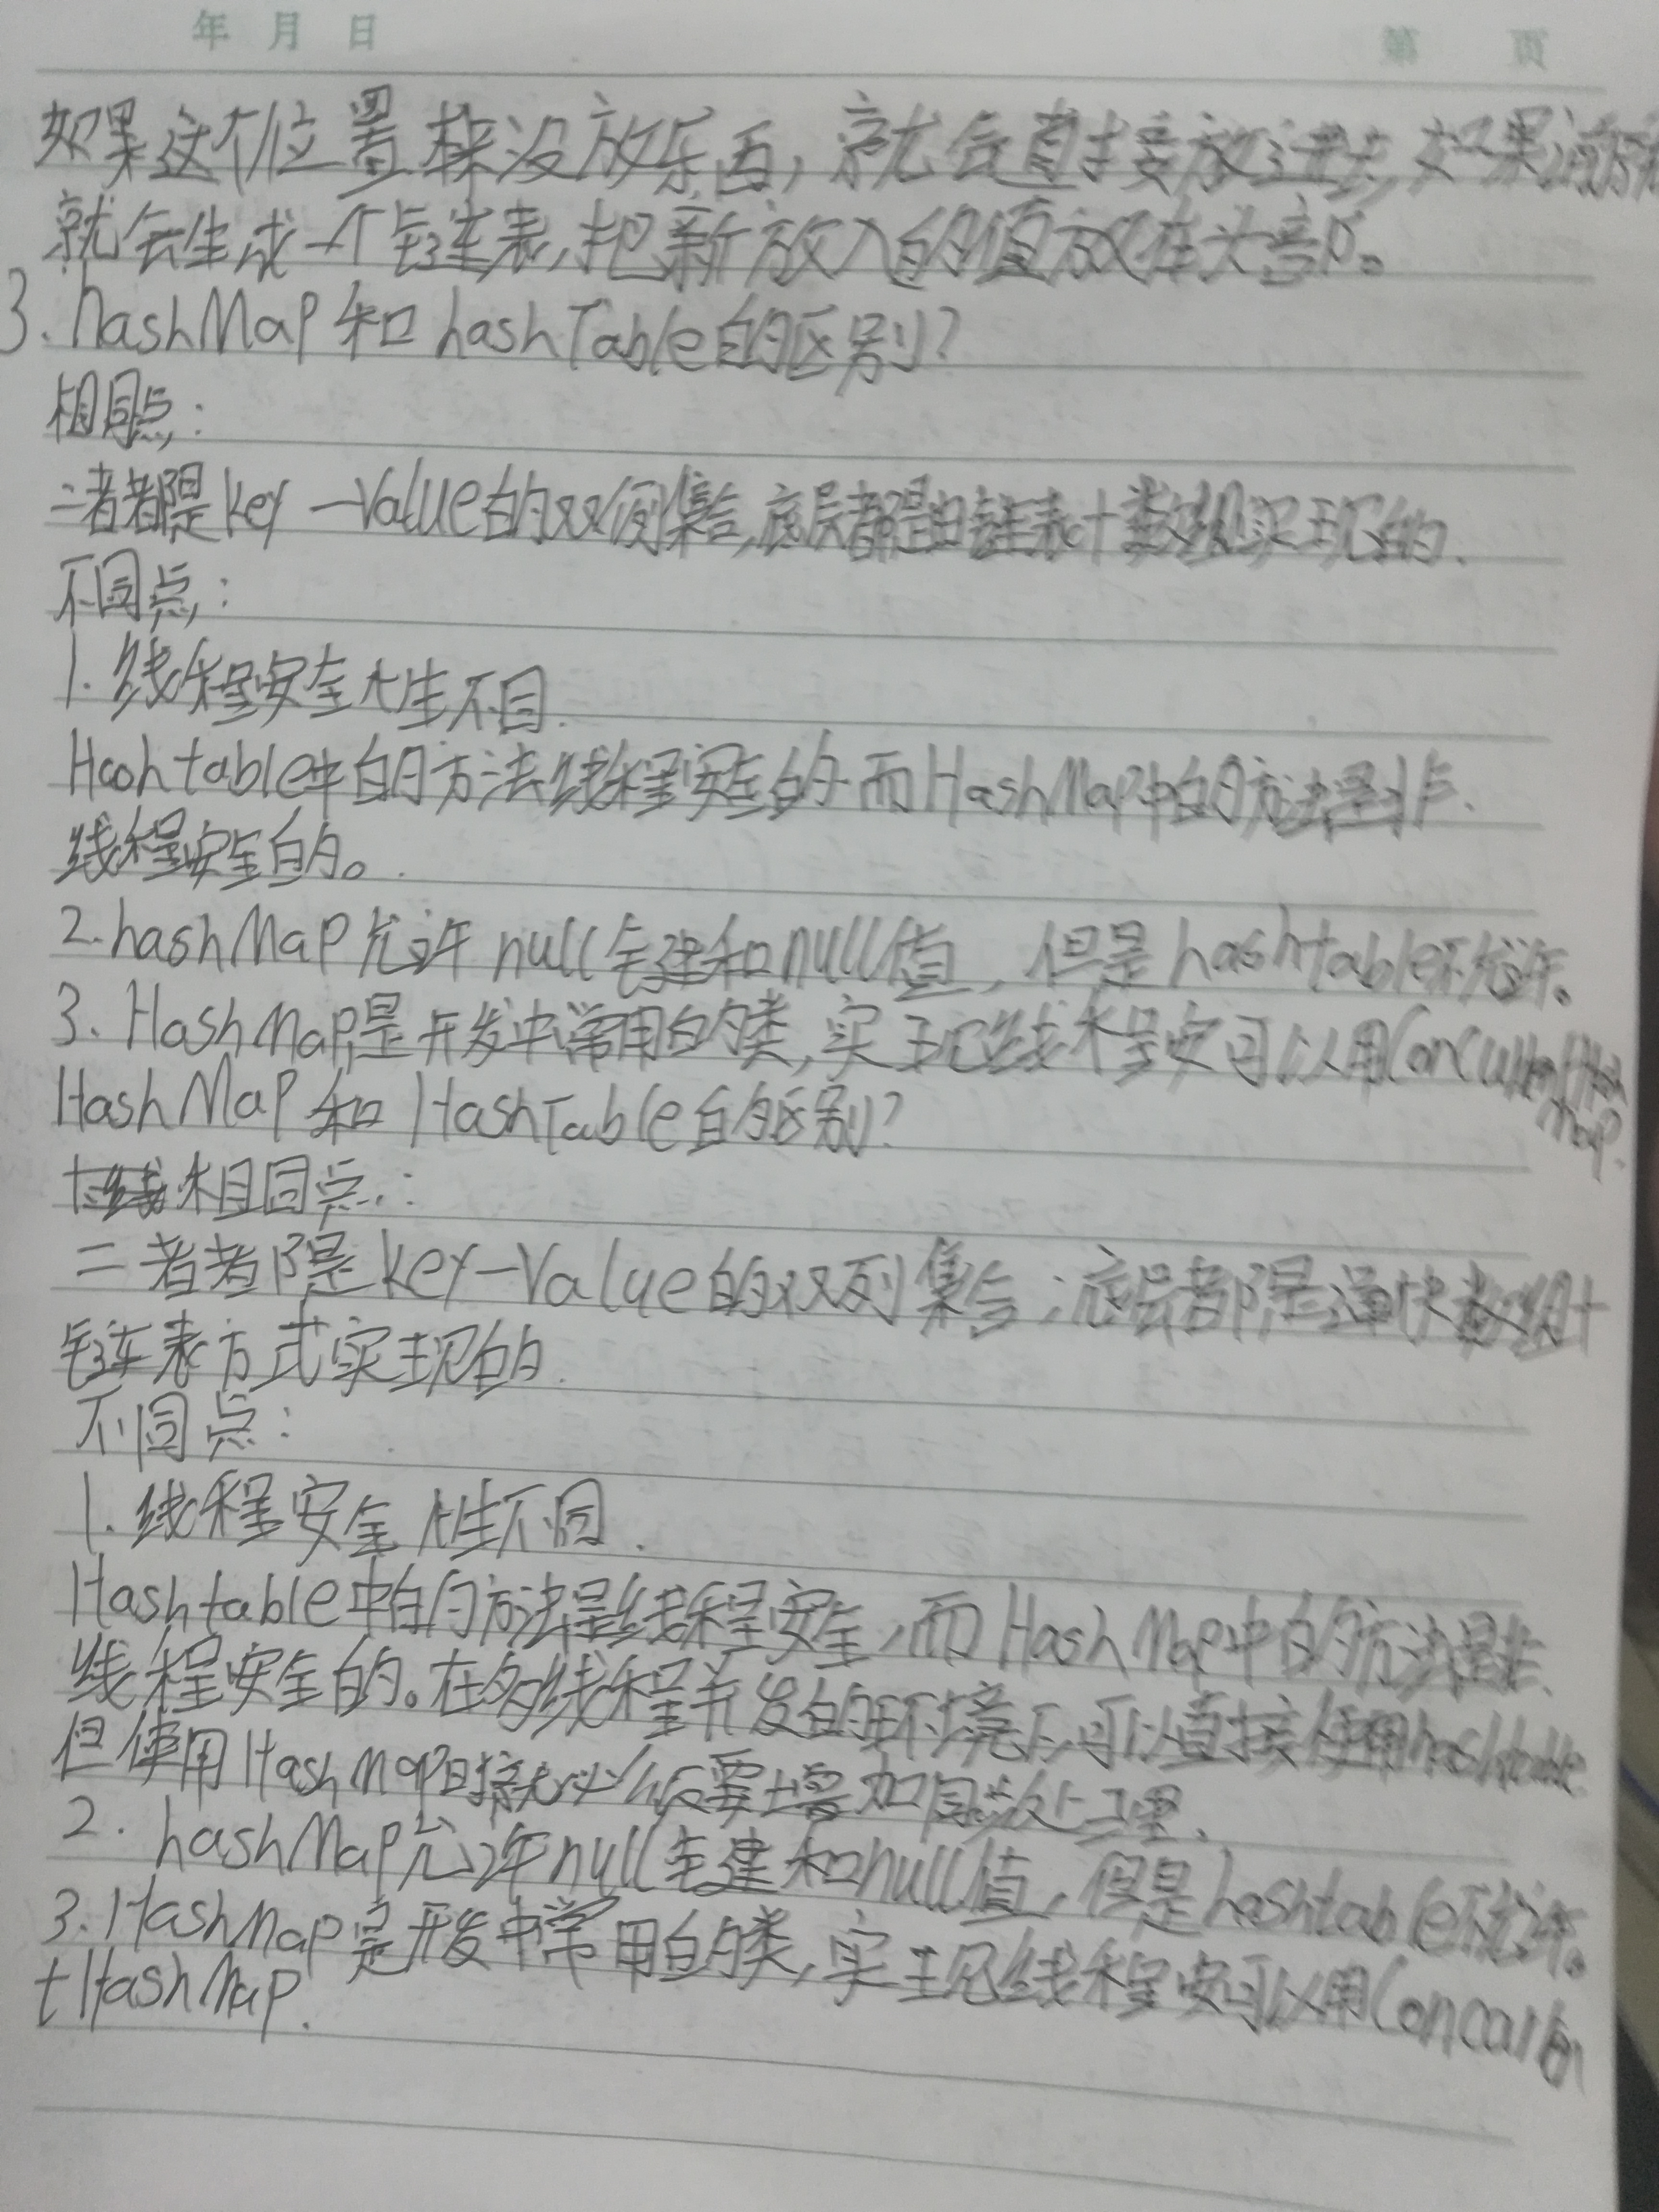 年 月 日 第 页
如果这个位置原来没放东西,就会直接放进去,如果
就会生成一个链表,把新放入的值放在头部。
3.hashMap和hashTable的区别?
相同点:
二者都是key—Value的双列集合,底层都是由链表+数组实现的.
不同点:
1.线程安全性不同.
Hashtable中的方法线程安全的而HashMap中的方法是非.
线程安全的。
2.hashMap允许null键和null值,但是hashtable不允许。
3.HashMap是开发中常用的类,实现线程安可以用Concurrent Hash
Map.
HashMap和HashTable的区别?
相同点:
二者都是key—Value的双列集合;底层都是通快数组+
链表方式实现的.
不同点:
1.线程安全性不同.
Hashtable中的方法是线程安全,而HashMap中的方法是非
线程安全的。在多线程并发的环境下,可以直接使用hashtable
但使用HashMap时就必须要增加同步处理.
2.hashMap允许null键和null值,但是hashtable不允许。
3.HashMap是开发中常用的类,实现线程安可以用Concurren
tHashMap.